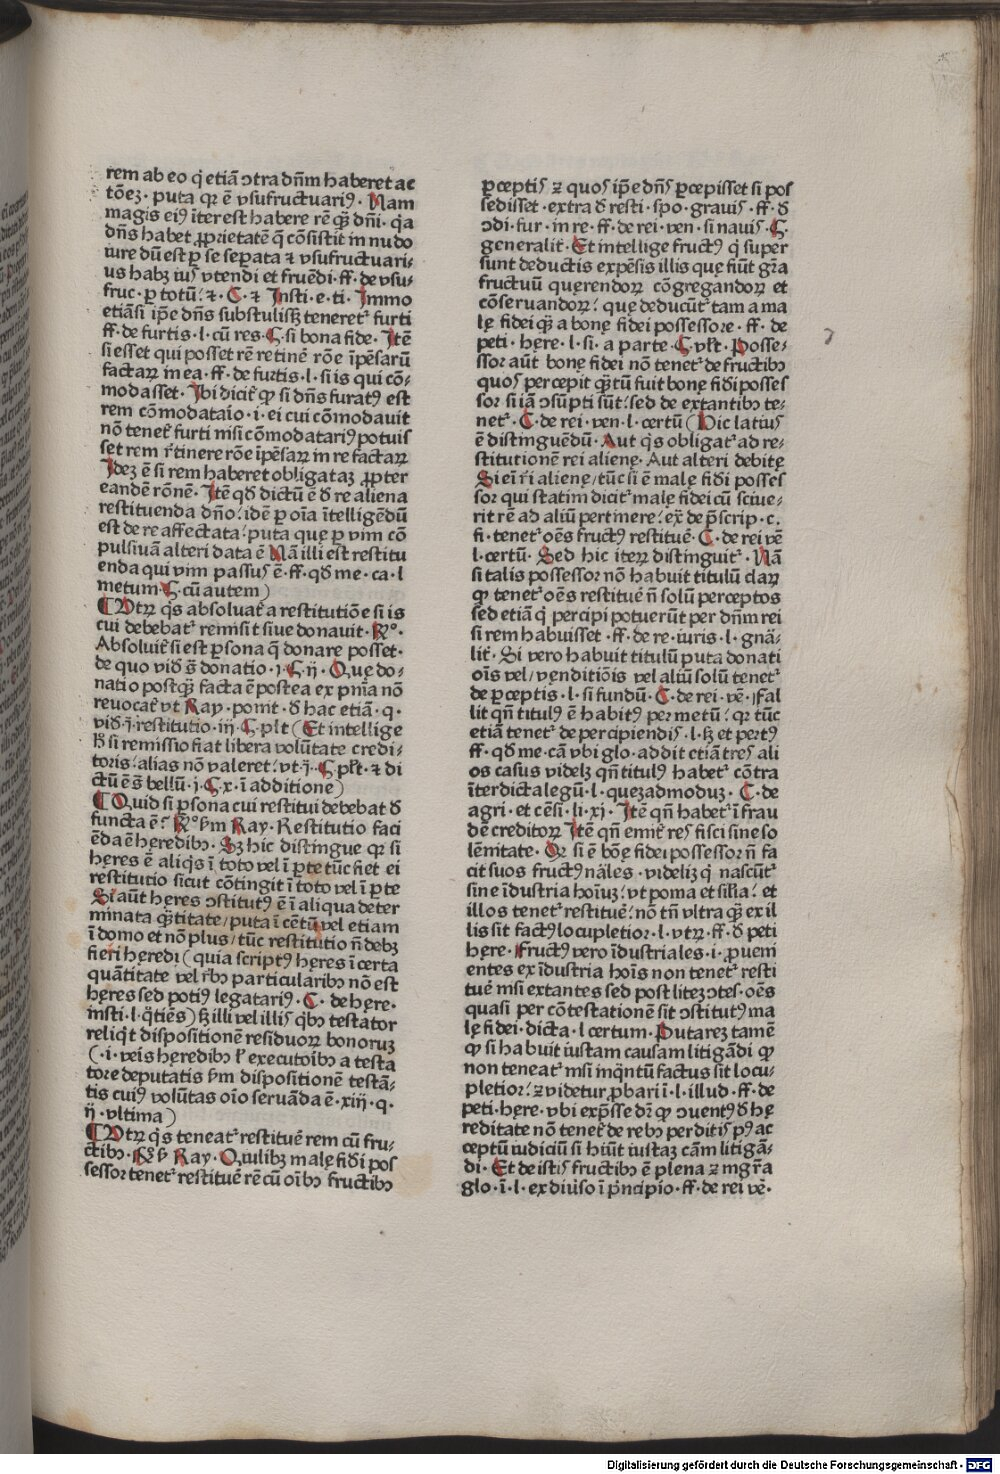 rem ab eo q̇ etiā ↄtra dn̄m haberet ac
tōeȝ · puta qꝛ ē vsufructuariꝰ · Nam
magis eiꝰ īter est habere rē qȝ̄ dn̄i · q̇a
dn̄s habet ꝓprietatē q̄ cōsistit in nudo
iure dū est ꝑ se seꝑata ⁊ vsufructuari⸗
us habȝ iuꝰ vtendi et fruēdi · ff · de vsu⸗
fruc · ꝑ totū? ⁊ · C · ⁊ Insti · e · ti · Immo
etiāsi ip̄e dn̄s substulissȝ teneret᷑ furti
ff · de furtis · l · cū res · § · si bona fide · Itē
si esset qui posset rē retinē rōe īpēsarū
factaꝝ in ea · ff · de furtis · l · si is qui cō⸗
modasset · Ibi dicit᷑ ꝙ si dn̄s furatꝰ est
rem cōmodataīo · i · ei cui cōmodauit
nō tenet᷑ furti nisi cōmodatariꝰ potuis
set rem r̄tinere rōne īpēsaꝝ in re factaꝝ
Ideȝ ē si rem haberet obligataȝ ꝓpter
eandē rōnē · Itē qd̄ dictū ē d̄ re aliena
restituenda dn̄o? idē ꝑ oīa ītelligēdū
est de re affectata? puta que ꝑ vim cō
pulsiuā alteri data ē Nā illi est restitu
enda qui vim passuꝰ ē · ff · qd̄ me · ca · l
metum · § · cū autem)
¶ Vtꝝ qͥs absoluat᷑ a restitutiōe si is
cui debebat᷑ remisit siue donauit · R̄ᵒ ·
Absoluit᷑ si est ꝑsona q̄ donare posset ·
de quo vid̄ s̄ donatio · j · § · ij · Que do⸗
natio postqȝ̄ facta ē postea ex pn̄ia nō
reuocat᷑ vt Ray · ponit · d̄ hac etiā · q ·
vid̄ · j̄ · restitutio · iij · § · pl̄t (Et intellige
h̄ si remissio fiat libera volūtate credi⸗
toris? alias nō valeret? vt · j̄ · § · pl̄t · ⁊ di
ctū ē s̄ bellū · j · § · x · ī additione)
¶ Quid si ꝑsona cui restitui debebat d̄
functa ē? R̄ᵒ ẜm Ray · Restitutio faci
ēda ē heredibꝫ · Sȝ hic distingue qꝛ si
heres ē aliqͥs ī toto vel ī ꝑte tūc fiet ei
restitutio sicut cōtingit ī toto vel ī ꝑte
Si aūt heres ↄstitutꝰ ē ī aliqua deter
minata qȝ̄titate / puta ī cētū vel etiam
ī domo et nō plus / tūc restitutio n̄ debȝ
fieri heredi (quia scriptꝰ heres ī certa
quātitate vel r̄bꝫ particularibꝫ nō est
heres sed potiꝰ legatariꝰ · C · de here ·
insti · l · q̄tiēs) sȝ illi vel illiꝰ qͥbꝫ testator
reliqͥt dispositionē residuoꝝ bonoruȝ
( · i · veīs heredibꝫ ł executoībꝫ a testa
tore deputatis ẜm dispositionē testā⸗
tis cuiꝰ volūtas oīo seruāda ē · xiij · q ·
ij · vltima)
¶ Vtꝝ qͥs teneat᷑ restituē rem cū fru⸗
ctibꝫ · R̄ᵒ ẜ Ray · Quilibȝ male fid̄i pos
sessor tenet᷑ restituē rē cū oībꝫ fructibꝫ
ꝑceptiꝰ ⁊ quoꝰ ip̄e dn̄ꝰ ꝑcepisset si pos
sedisset · extra d̄ resti · spo · grauiꝰ · ff · d̄
ↄdi · fur · in re · ff · de rei · ven · si nauiꝰ · § ·
generalit᷑ · Et intellige fructꝰ q̇ super
sunt deductis expēsis illis que fiūt gr̄a
fructuū querendoꝝ cōgregandoꝝ et
cōseruandoꝝ? que deducūt᷑ tam a ma
le fidei qȝ̄ a bone fidei possessore · ff · de
peti · here · l · si · a parte · § · vl̄t · Posse⸗
ssor aūt bone fidei nō tenet᷑ de fructibꝫ
quoꝰ percepit qȝ̄tū fuit bone fid̄i posses
sor si iā ↄsūpti sūt? sed de extantibꝫ te⸗
net᷑ · C · de rei · ven · l · certū (Hic latiꝰ
ē distinguēdū · Aut qͥs obligat᷑ ad re⸗
stitutionē rei aliene · Aut alteri debite
Si eī r̄i aliene / tūc si ē male fid̄i posses
sor qui statim dicit᷑ male fidei cū sciue⸗
rit rē ad aliū pertinere? ex̄ · de p̄scrip · c ·
fi · tenet᷑ oēs fructꝰ restituē · C · de rei vē
l · certū · Sed hic iteꝝ distinguit᷑ · Nā
si talis possessor nō habuit titulū claꝝ
ꝙ tenet᷑ oēs restituē n̄ solū perceptos
sed etiā q̇ percipi potuerūt per dn̄m rei
si rem habuisset · ff · de re · iuris · l · gnā⸗
lit᷑ · Si vero habuit titulū puta donati
oīs vel / venditiōis vel aliū solū tenet᷑
de ꝑceptis · l · si fundū · C · de rei · vē · Fal
lit qn̄ titulꝰ ē habitꝰ per metū? qꝛ tūc
etiā tenet᷑ de percipiendiꝰ · l · sȝ et pertꝰ
ff · qd̄ me · cā vbi glo · addit etiā treꝰ ali
os casus videlȝ qn̄ titulꝰ habet᷑ cōtra
īterdicta legū · l · queȝadmoduȝ · C · de
agri · et cēsi · li · xj · Itē qn̄ habet᷑ ī frau
dē creditoꝝ Itē qn̄ emit᷑ reꝰ fisci sine so
lēnitate · Qꝛ si ē bōe fidei possessor n̄ fa
cit suos fructꝰ nāles · videlicȝ q̇ nascūt᷑
sine īdustria hoīuȝ? vt poma et sil̄ia? et
illos tenet᷑ restituē? nō tn̄ vltra qȝ̄ ex il
lis sit factꝰ locupletior · l · vtꝝ · ff · d̄ peti
here · Fructꝰ vero īdustriales · i · ꝓueni
entes ex īdustria hoīs non tenet᷑ resti
tuē nisi extantes sed post liteȝ ↄtes · oēs
quasi per cōtestationē sit ↄstitutꝰ ma
le fidei · dicta · l certum · Putareȝ tamē
ꝙ si habuit iustam causam litigādi ꝙ
non teneat᷑ nisi inqͣntū factus sit locu⸗
pletior? ⁊ videtur ꝓbari ī · l · illud · ff · de
peti · here · vbi exp̄sse dȓ ꝙ ↄuentꝰ d̄ he
reditate nō tenet᷑ de rebꝫ perditiꝰ pꝰ ac
ceptū iudiciū si hūit iustaȝ cām litigā⸗
di · Et de istiꝰ fructibꝫ ē plena ⁊ mgr̄a
glo · ī · l · ex diūso ī p̄ncipio · ff · de rei vē ·
Digitalisierung gefördert durch die Deutsche Forschungsgemeinschaft - DFG